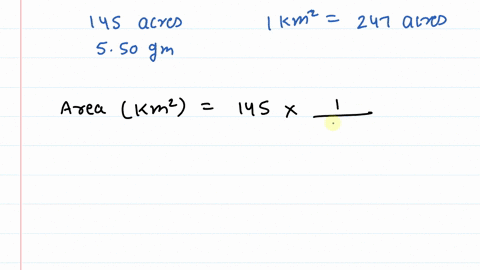 145 acres 1 Km² = 247 acres
5.50 gm
Area (Km²) = 145 × 1/